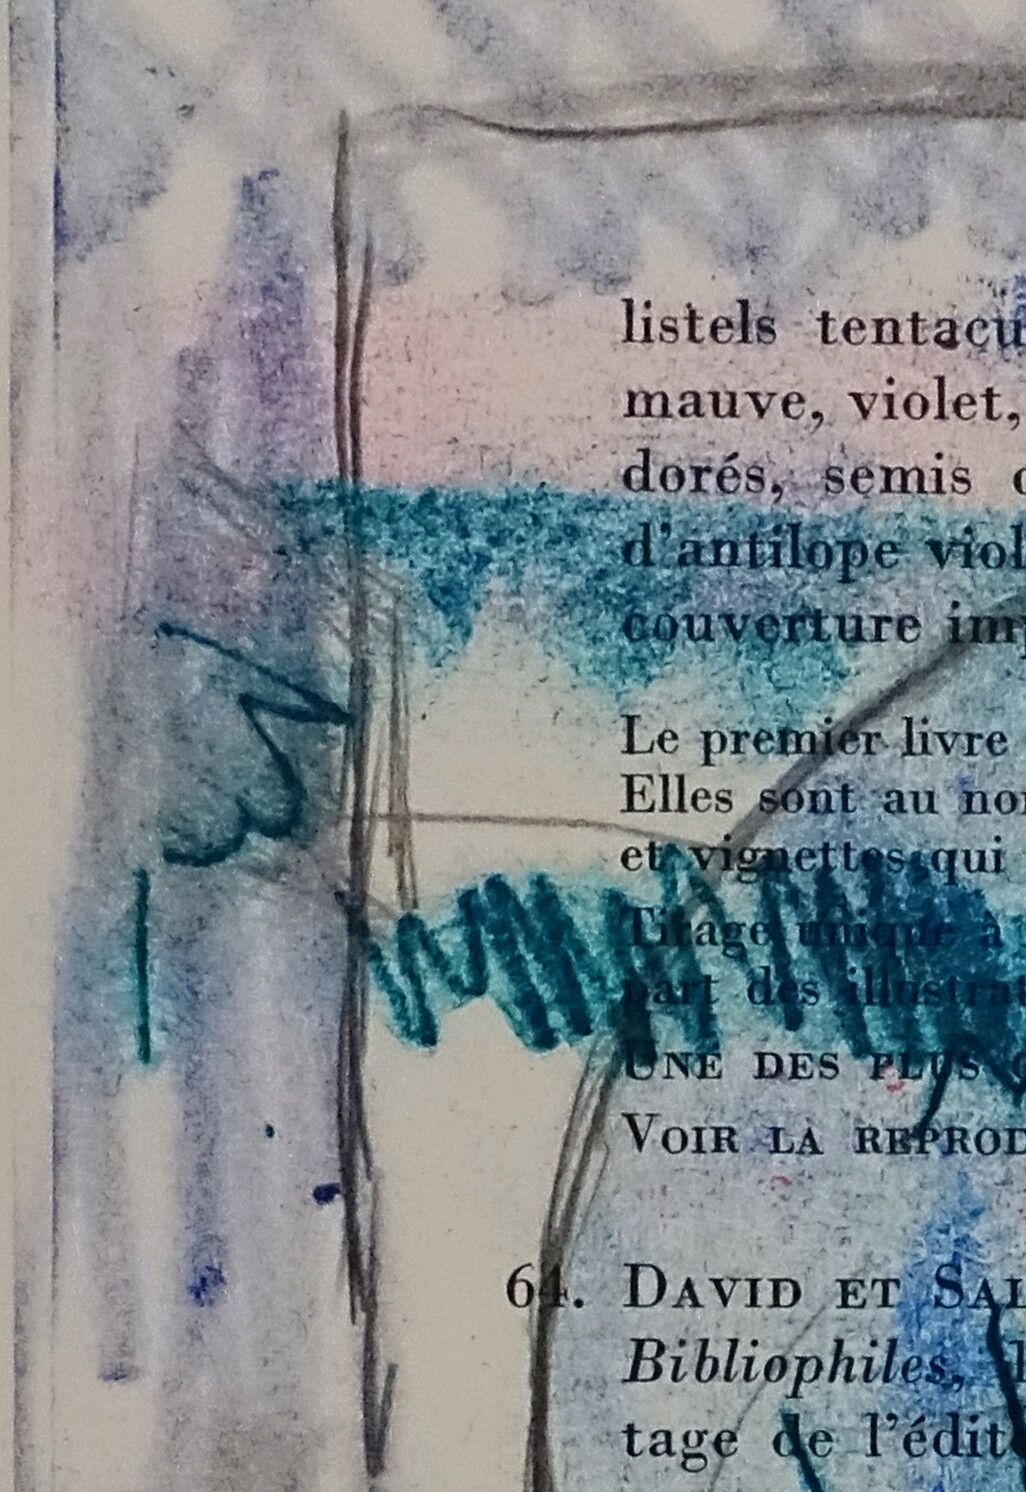 listels tentacu
mauve, violet,
dorés, semis
d'antilope viol
couverture im
Le premier livre
Elles sont au nom
et vignettes qui
Tirage unique à
part des illustrat
UNE DES PLUS
VOIR LA REPROD
64. DAVID ET SAL
Bibliophiles,
tage de l'édit